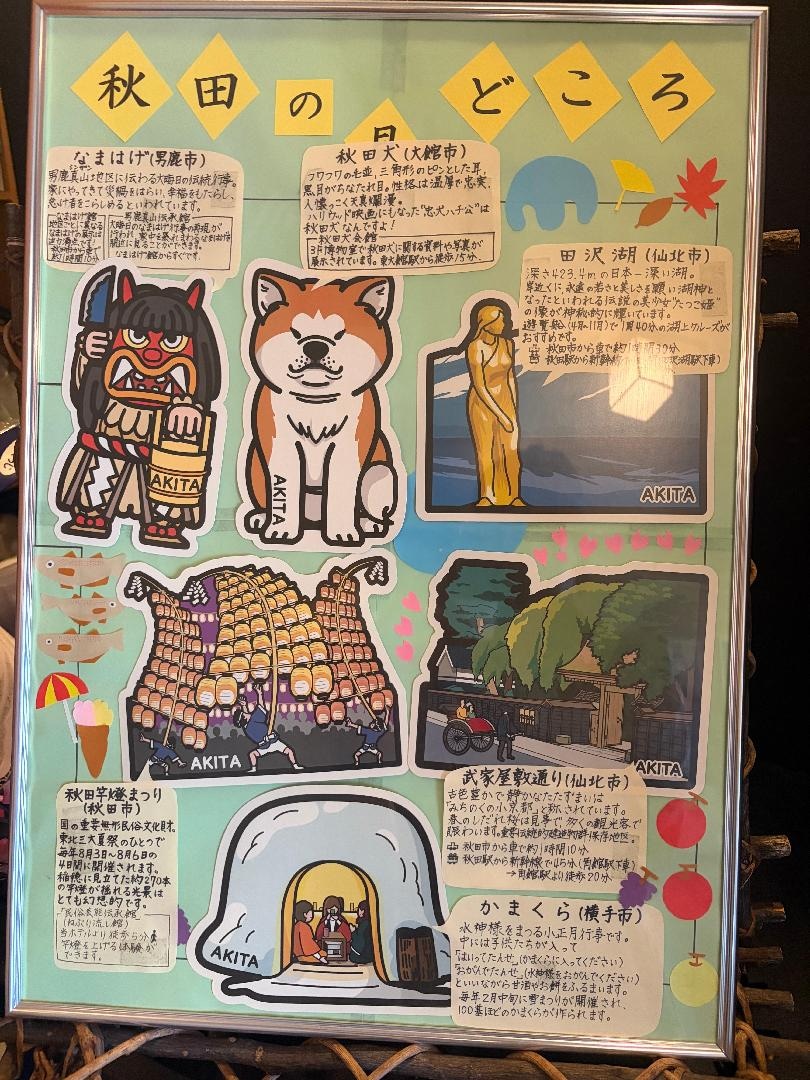 秋田の見どころ
なまはげ(男鹿市)
男鹿真山地区に伝わる大晦日の伝統行事。
家にやってきて災禍をはらい、幸福をもたらし、
怠け者をこらしめるといわれています。
なまはげ館
地区ごとに異なる
なまはげの展示は
迫力満点です!
秋田市から車で
約1時間10分
男鹿真山伝承館
大晦日のなまはげ行事の再現が
行われ、家中を暴れまわるなまはげを
間近に見ることができます。
なまはげ館からすぐです。
秋田犬(大館市)
フワフワの毛並、三角形のピンとした耳、
黒目がちなたれ目。性格は温厚で忠実、
人懐っこく天真爛漫。
ハリウッド映画にもなった"忠犬ハチ公"は
秋田犬なんですよ!
秋田犬会館
3F博物室で秋田犬に関する資料や写真が
展示されています。東大館駅から徒歩15分。
田沢湖(仙北市)
深さ423.4mの日本一深い湖。
岸近くに、永遠の若さと美しさを願い湖神と
なったといわれる伝説の美少女"たつこ姫"
の像が神秘的に輝いています。
遊覧船(4月~11月)で1周40分の湖上クルーズが
おすすめです。
秋田市から車で約1時間30分
秋田駅から新幹線
沢湖駅下車)
AKITA
AKITA
AKITA
AKITA
AKITA
秋田竿燈まつり
(秋田市)
国の重要無形民俗文化財。
東北三大夏祭のひとつで
毎年8月3日~8月6日の
4日間に開催されます。
稲穂に見立てた約270本
の竿燈が揺れる光景は
とても幻想的です。
民俗芸能伝承館
(ねぶり流し館)
当ホテルより徒歩5分
竿燈を上げる体験が
できます。
武家屋敷通り(仙北市)
古色豊かで静かなたたずまいは
「みちのくの小京都」と称されています。
春のしだれ桜は見事で多くの観光客で
賑わいます。重要伝統的建造物群保存地区。
秋田市から車で約1時間10分
秋田駅から新幹線で45分(角館駅下車)
→角館駅より徒歩20分
AKITA
かまくら(横手市)
水神様をまつる小正月行事です。
中には子供たちが入って
「はいってたんせ」(かまくらに入ってください)
「おがんでたんせ」(水神様をおがんでください)
といいながら甘酒やお餅をふるまいます。
毎年2月中旬に雪まつりが開催され、
100基ほどのかまくらが作られます。